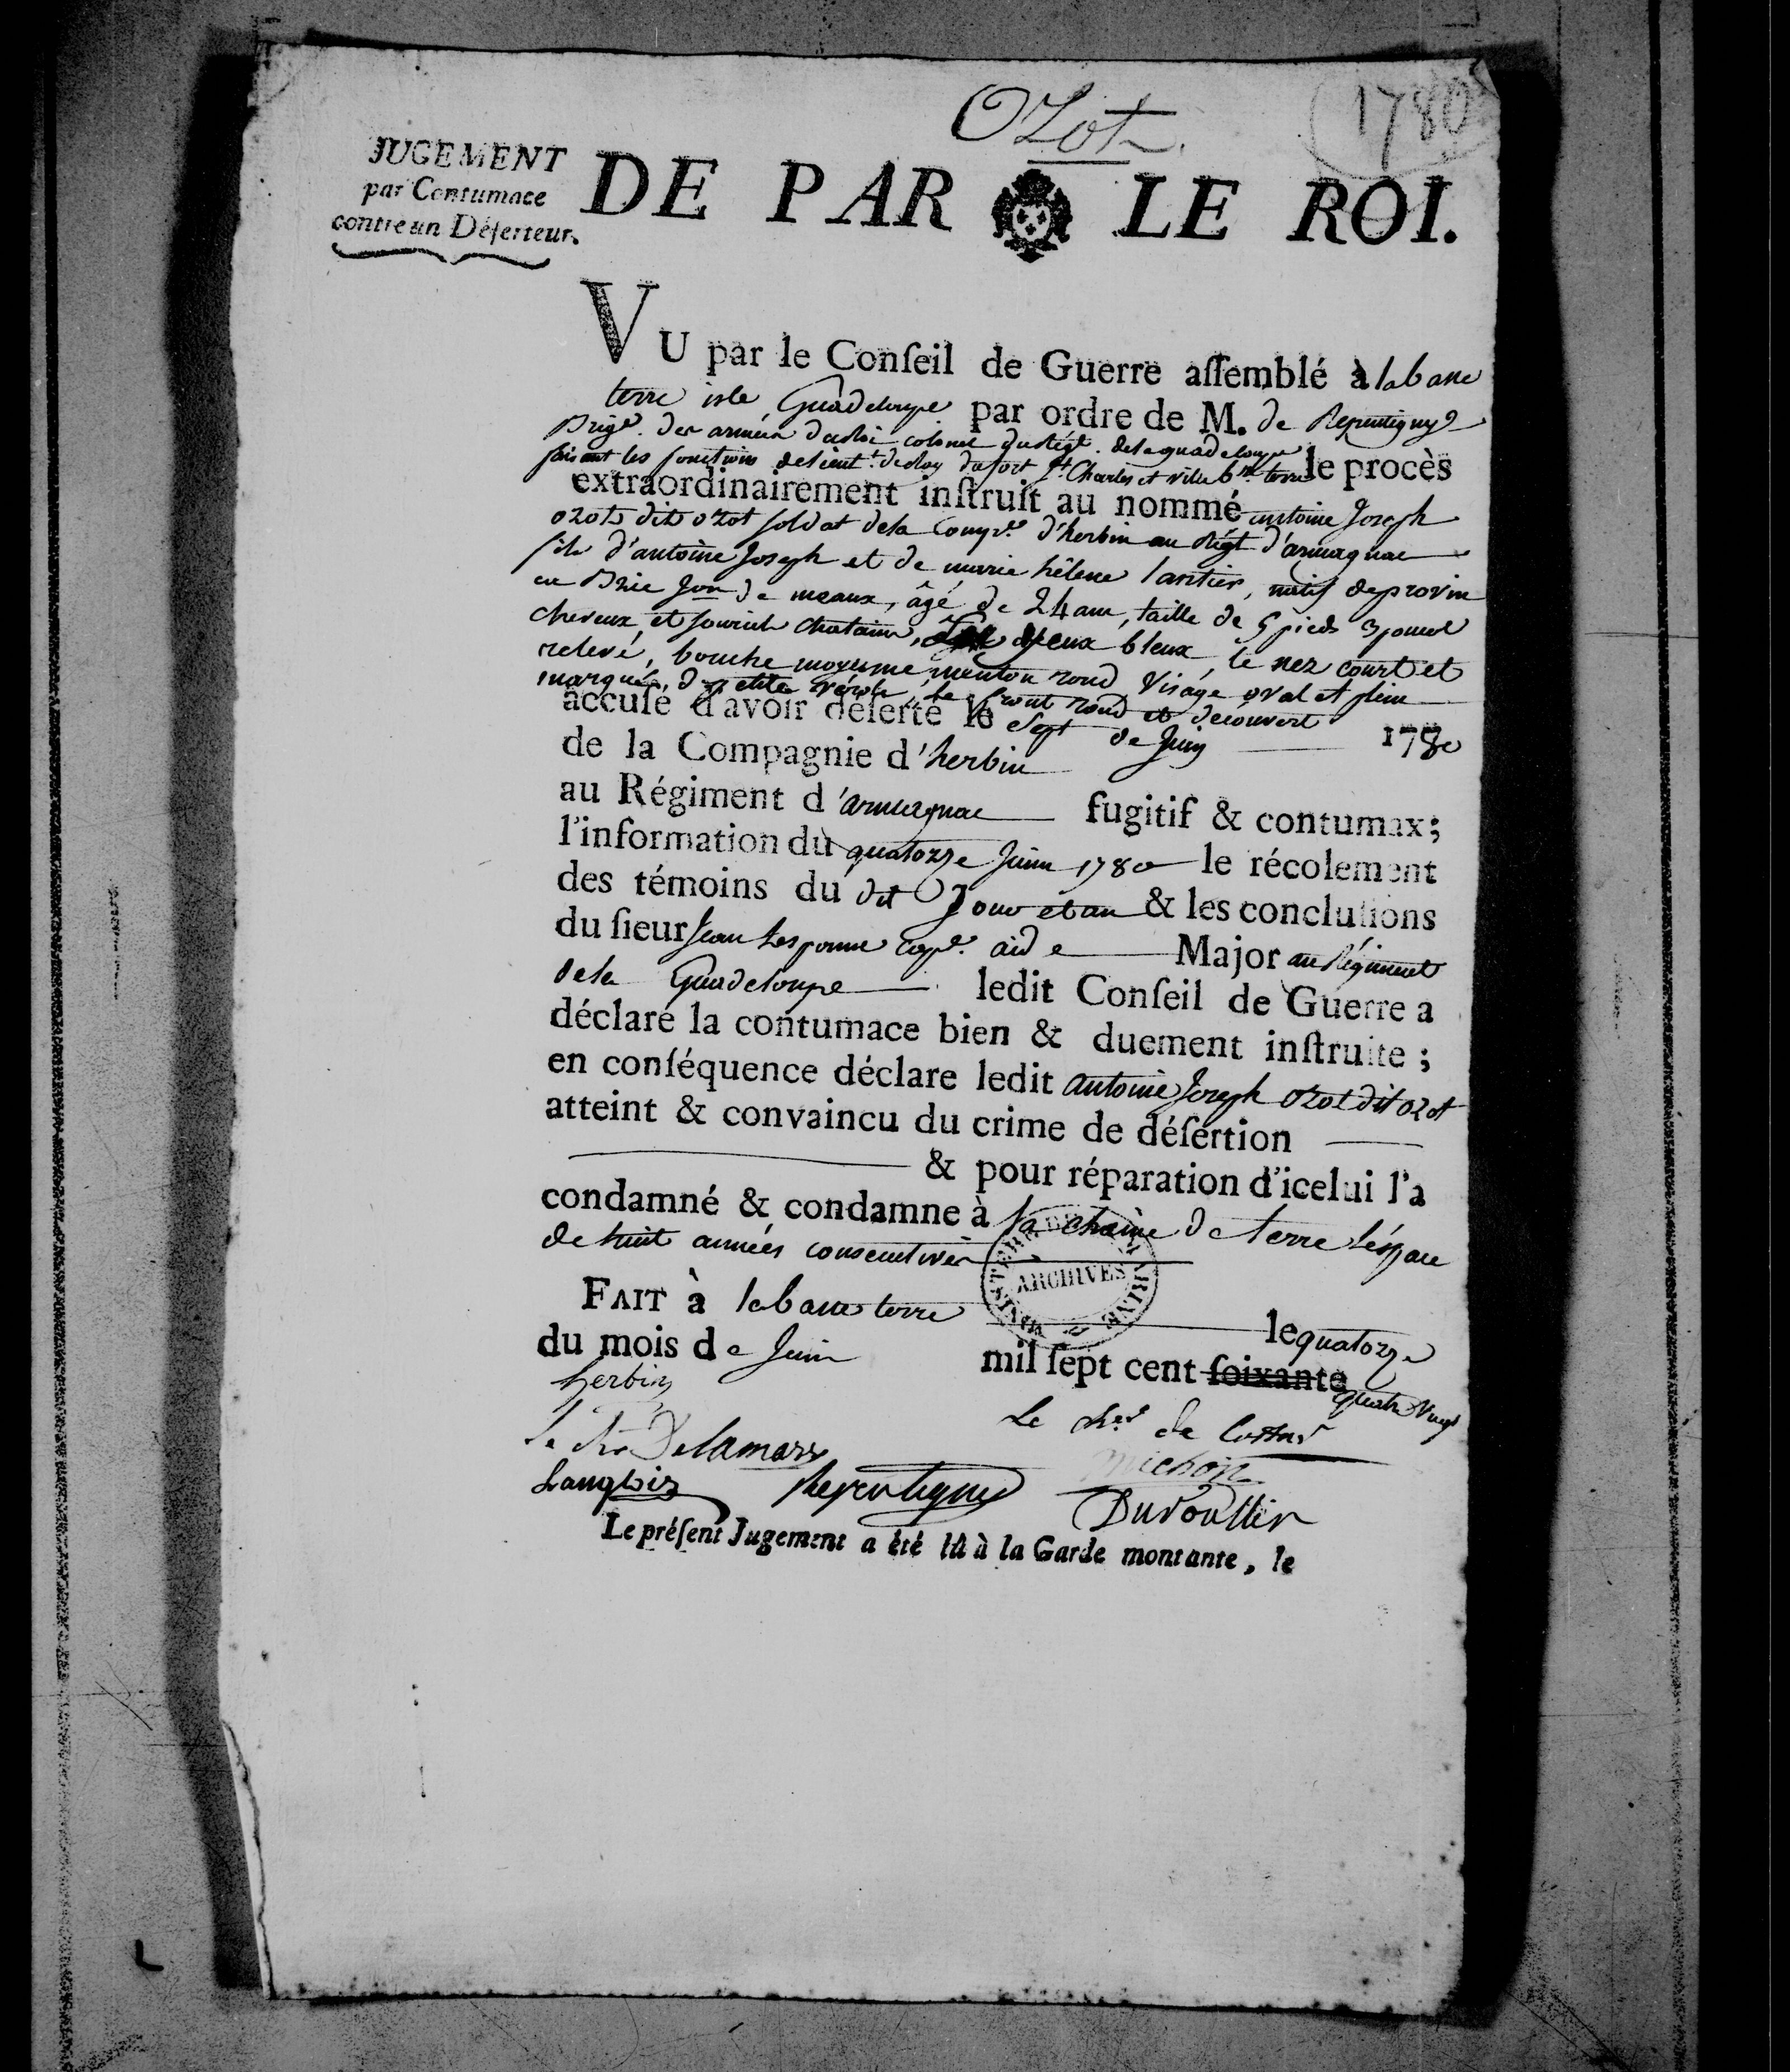 Ozot.
1780
JUGEMENT
par Contumace
contre un Déſerteur.
DE PAR LE ROI.
VU par le Conſeil de Guerre aſſemblé à la basse
terre isle Guadeloupe par ordre de M. de Repentigny
Brigr. des armées du Roi colonel du Régt. de la guadeloupe
faisant les fonctions de lieutt. de Roy du fort St. Charles et ville bsse. terre le procès
extraordinairement inſtruit au nommé antoine Joseph
ozot dit ozot soldat de la Compie. d'herbin au Régt d'armagnac
fils d'antoine Joseph et de marie hélene lantier, natif de provin
en Brie Jon de meaux, âgé de 24 ans, taille de 5 pieds 3 pouces
cheveux et sourcils chatains, yeux bleux, le nez court et
relevé, bouche moyenne menton rond visage oval et plein
marqué, de petite vérole, le front rond et découvert
accuſé d'avoir déſerté le Sept de Juin 1780
de la Compagnie d'herbin
au Régiment d'armagnac fugitif & contumax;
l'information du quatorze Juin 1780 le récolement
des témoins du dit Jour et an & les concluſions
du ſieur Jean Lesponne cape. aide Major au Régiment
de la Guadeloupe ledit Conſeil de Guerre a
déclaré la contumace bien & duement inſtruite;
en conſéquence déclare ledit antoine Joseph ozot dit ozot
atteint & convaincu du crime de déſertion
& pour réparation d'icelui l'a
condamné & condamne à la chaine de terre l'espace
de huit années consecutives
MINISTERE DE LA MARINE
ARCHIVES
FAIT à la basse terre le quatorze
du mois de Juin mil ſept cent ſoixante quatre vingt
herbin
Le cher de
le chr Delamarre
Michon
Langlois Repentigny Duvouldin
Le préſent Jugement a été lû à la Garde montante, le